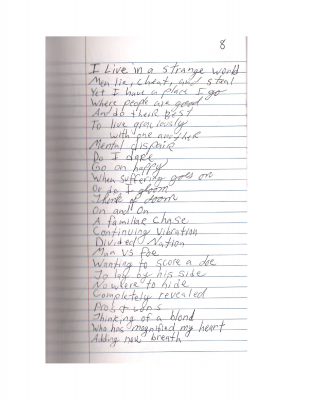 8
I Live in a strange world
Men lie, cheat, and steal
Yet I have a place I go
Where people are good
And do their Best
To live graciously
with one another
Mental dispair
Do I dare
Go on happy
When suffering goes on
Or do I gloom
Think of doom
On and On
A familiar Chase
Continuing Vibration
Divided Nation
Man vs foe
Wanting to score a doe
To lay by his side
Nowhere to hide
Completely revealed
Pros + cons
Thinking of a blond
Who has magnified my heart
Adding new breath